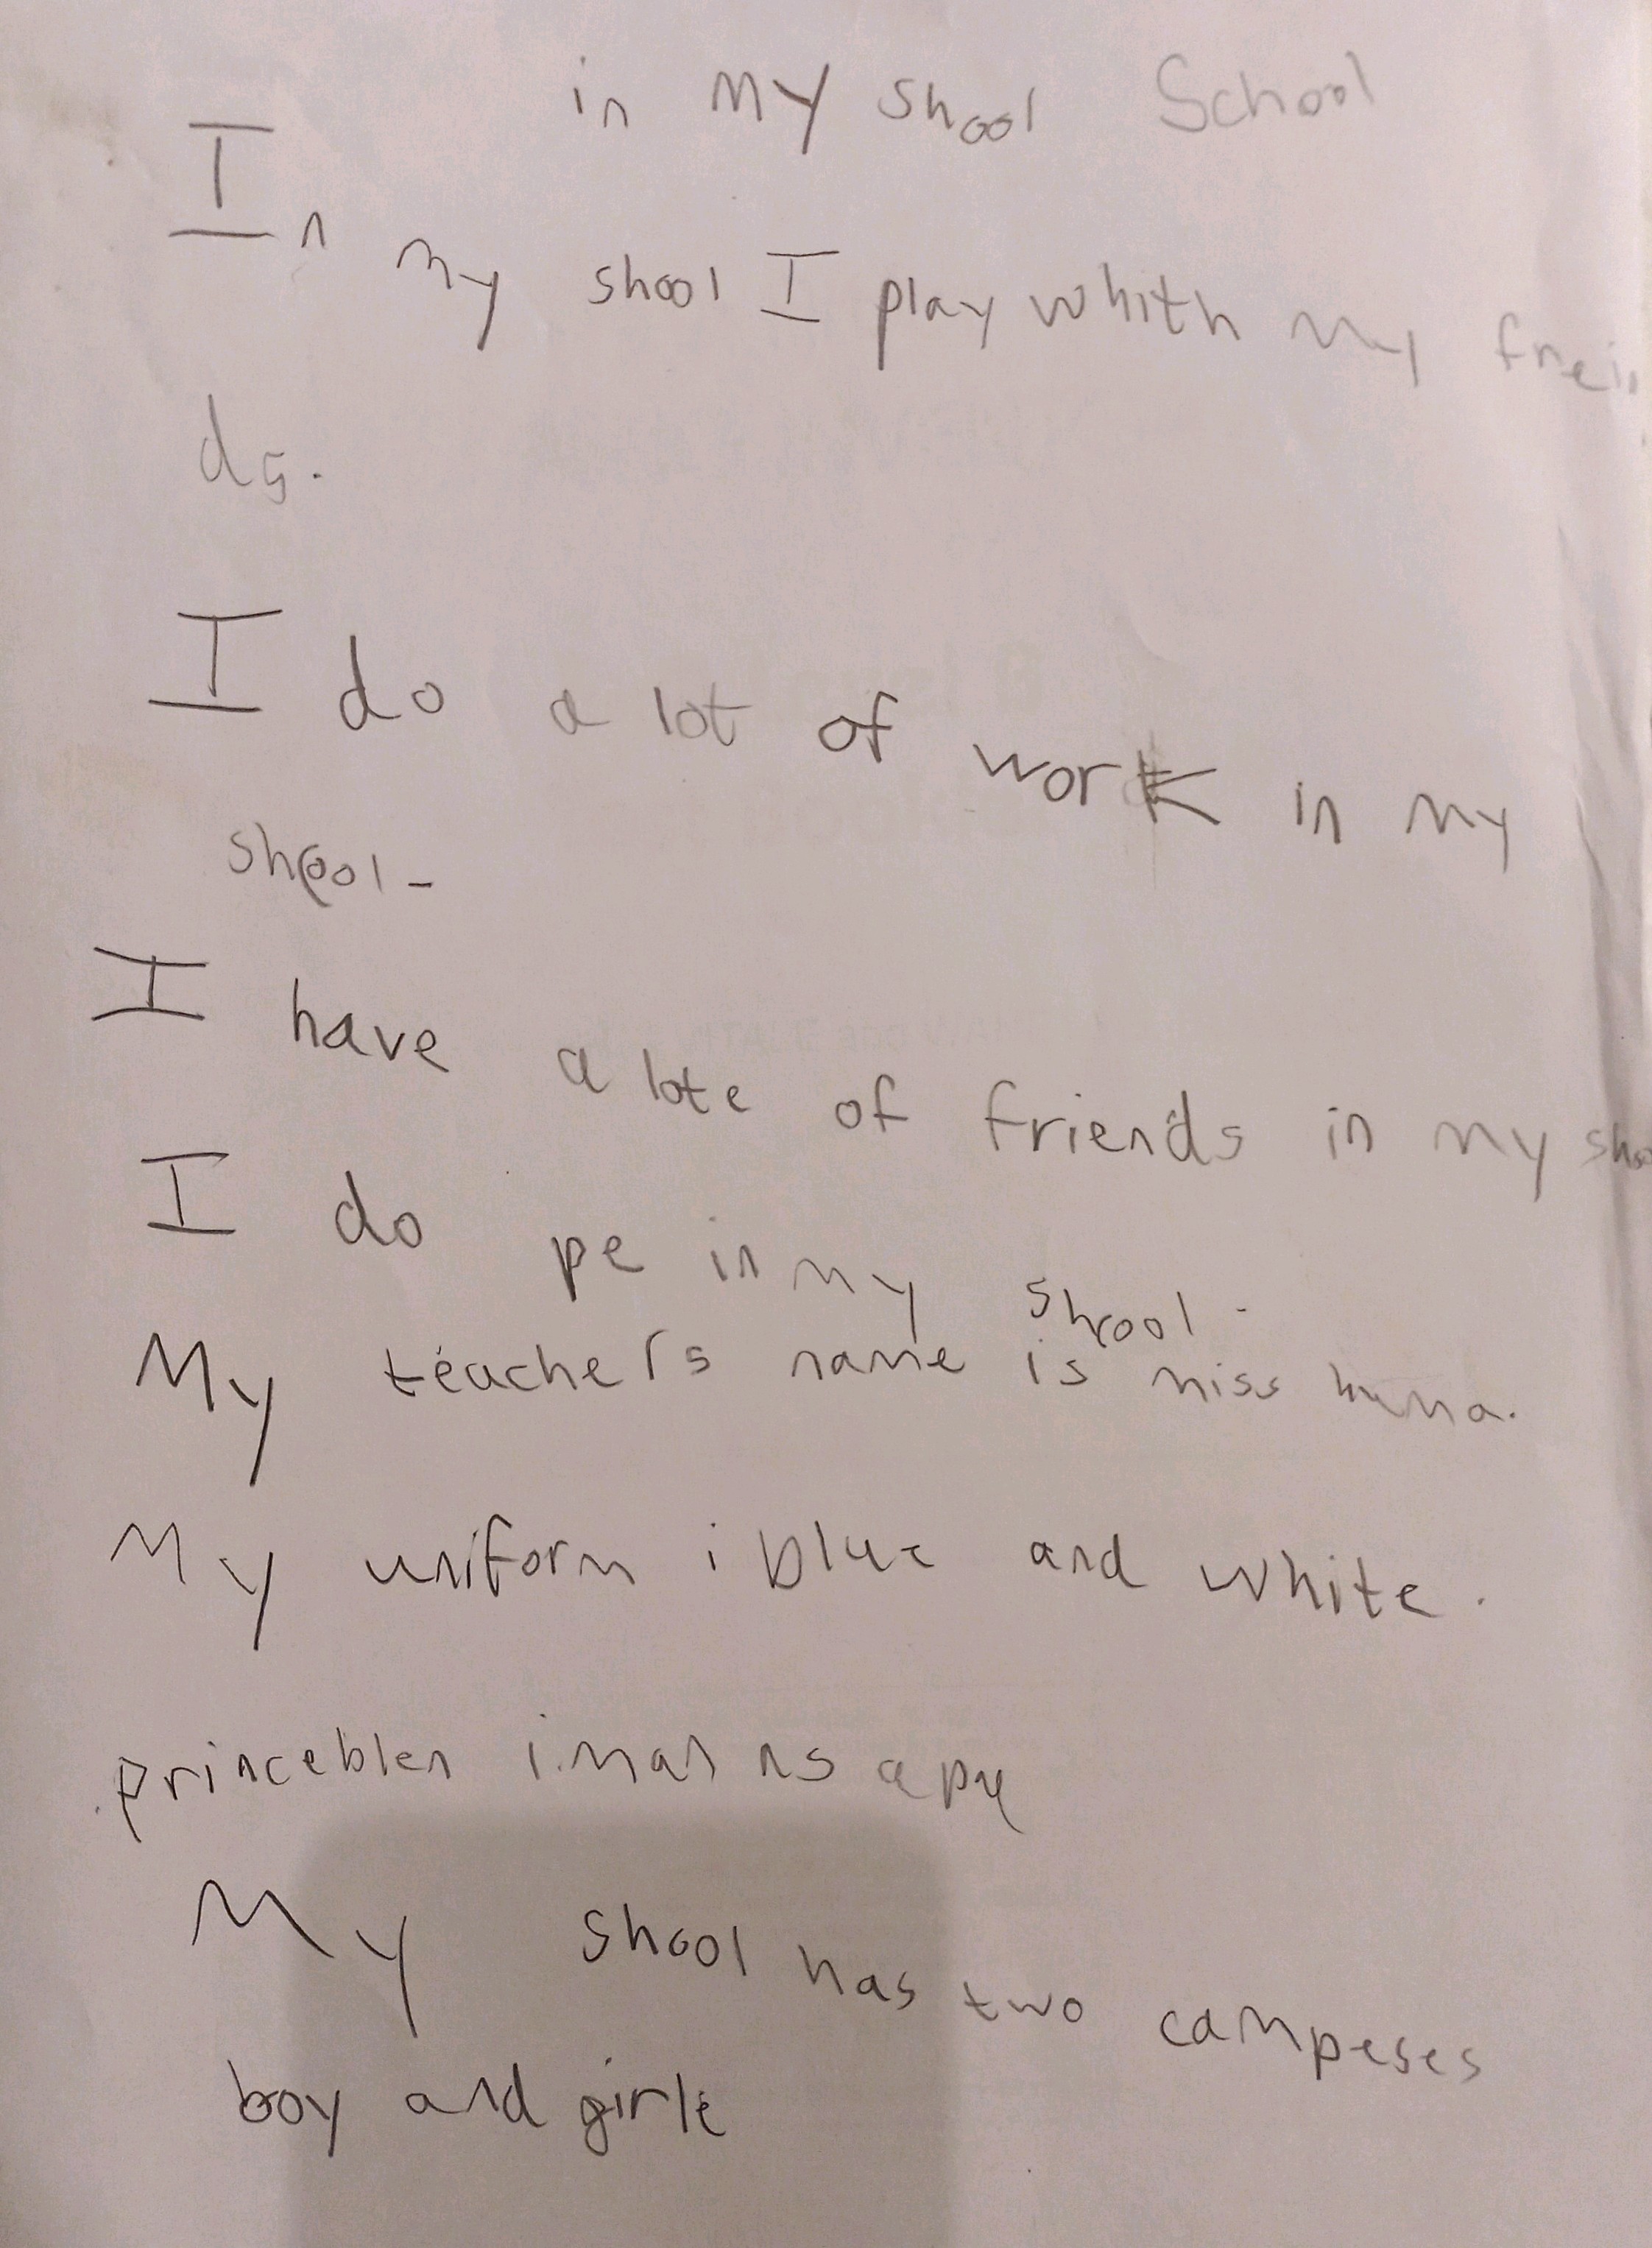 in my shool School
In my shool I play whith my frein
ds.
I do a lot of work in my
shool-
I have a lote of friends in my shoo
I do pe in my shool.
My teachers name is miss
My uniform i blue and white.
My shool has two campeses
boy and girle